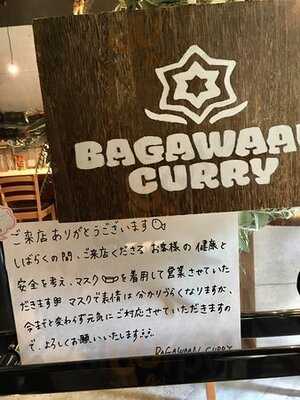 BAGAWAAN
CURRY
ご来店ありがとうございます
しばらくの間、ご来店くださる お客様の 健康と
安全を考え、マスク を着用して営業させていた
だきます マスクで表情は 分かりづらくなりますが、
今までと変わらず元気に ご対応させていただきますの
で、よろしくお願いいたします
BAGAWAAN CURRY